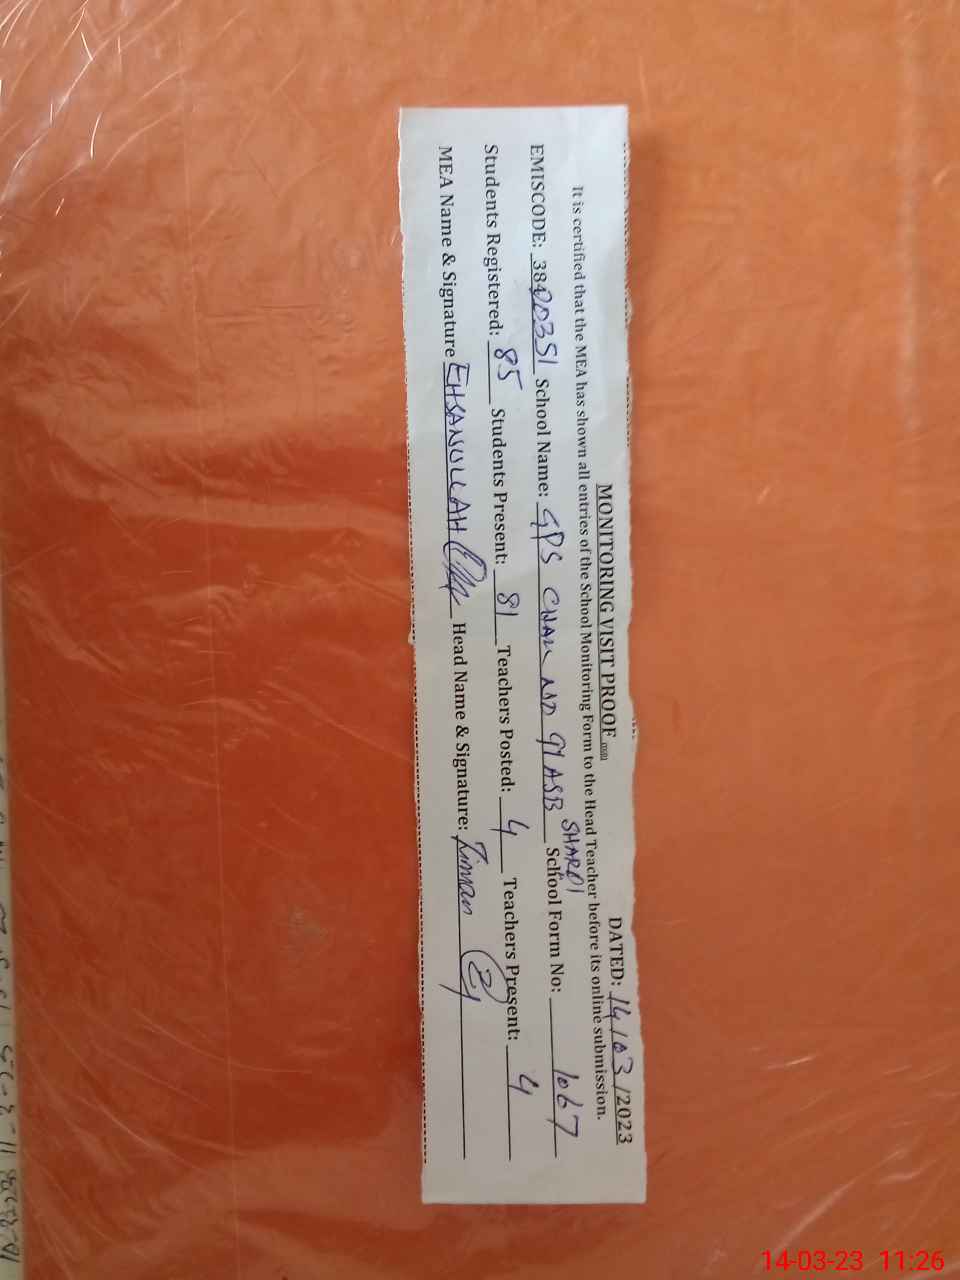 MONITORING VISIT PROOF
DATED: 14/03/2023
It is certified that the MEA has shown all entries of the School Monitoring Form to the Head Teacher before its online submission.
EMISCODE: 38400351 School Name: GPS CHAH NO 91 ASB SHARQI School Form No: 1067
Students Registered: 85 Students Present: 81 Teachers Posted: 4 Teachers Present: 4
MEA Name & Signature EHSANULLAH Head Name & Signature:
14-03-23 11:26